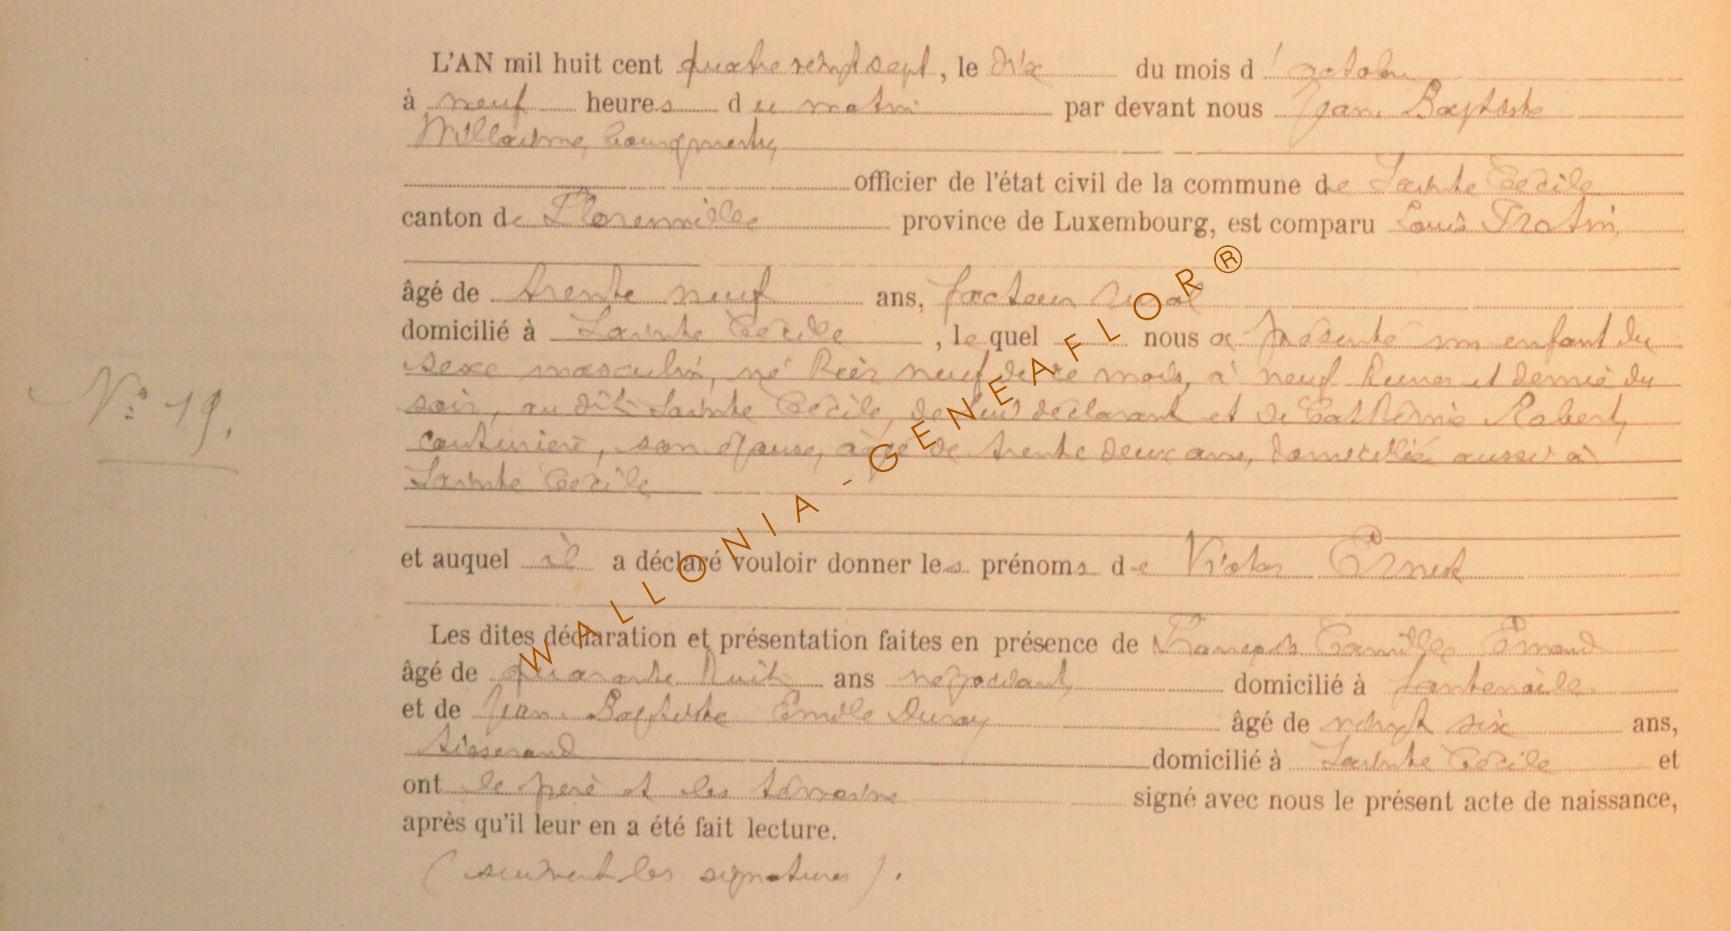 L'AN mil huit cent quatre vingt sept, le dix du mois d' octobre
à neuf heures du matin par devant nous Jean Baptiste
Willaime, bourgmestre,
officier de l'état civil de la commune de Sainte Cécile
canton de Florenville province de Luxembourg, est comparu Louis Protin,
âgé de trente neuf ans, facteur rural
domicilié à Sainte Cécile, le quel nous a présenté un enfant du
sexe masculin, né hier neuf de ce mois, à neuf heures et demie du
soir, au dit Sainte Cécile, de lui déclarant et de Catherine Robert,
couturière, son épouse, agée de trente deux ans, domiciliée aussi à
Sainte Cécile
et auquel il a déclaré vouloir donner les prénoms de Victor Ernest
Les dites déclaration et présentation faites en présence de François Camille Emond
âgé de quarante huit ans négociant, domicilié à Fontenoille
et de Jean Baptiste Emile Duroy âgé de vingt six ans,
tisserand domicilié à Sainte Cécile et
ont le père et les témoins signé avec nous le présent acte de naissance,
après qu'il leur en a été fait lecture.
(suivent les signatures).
N° 19.
WALLONIA - GENEAFLOR®